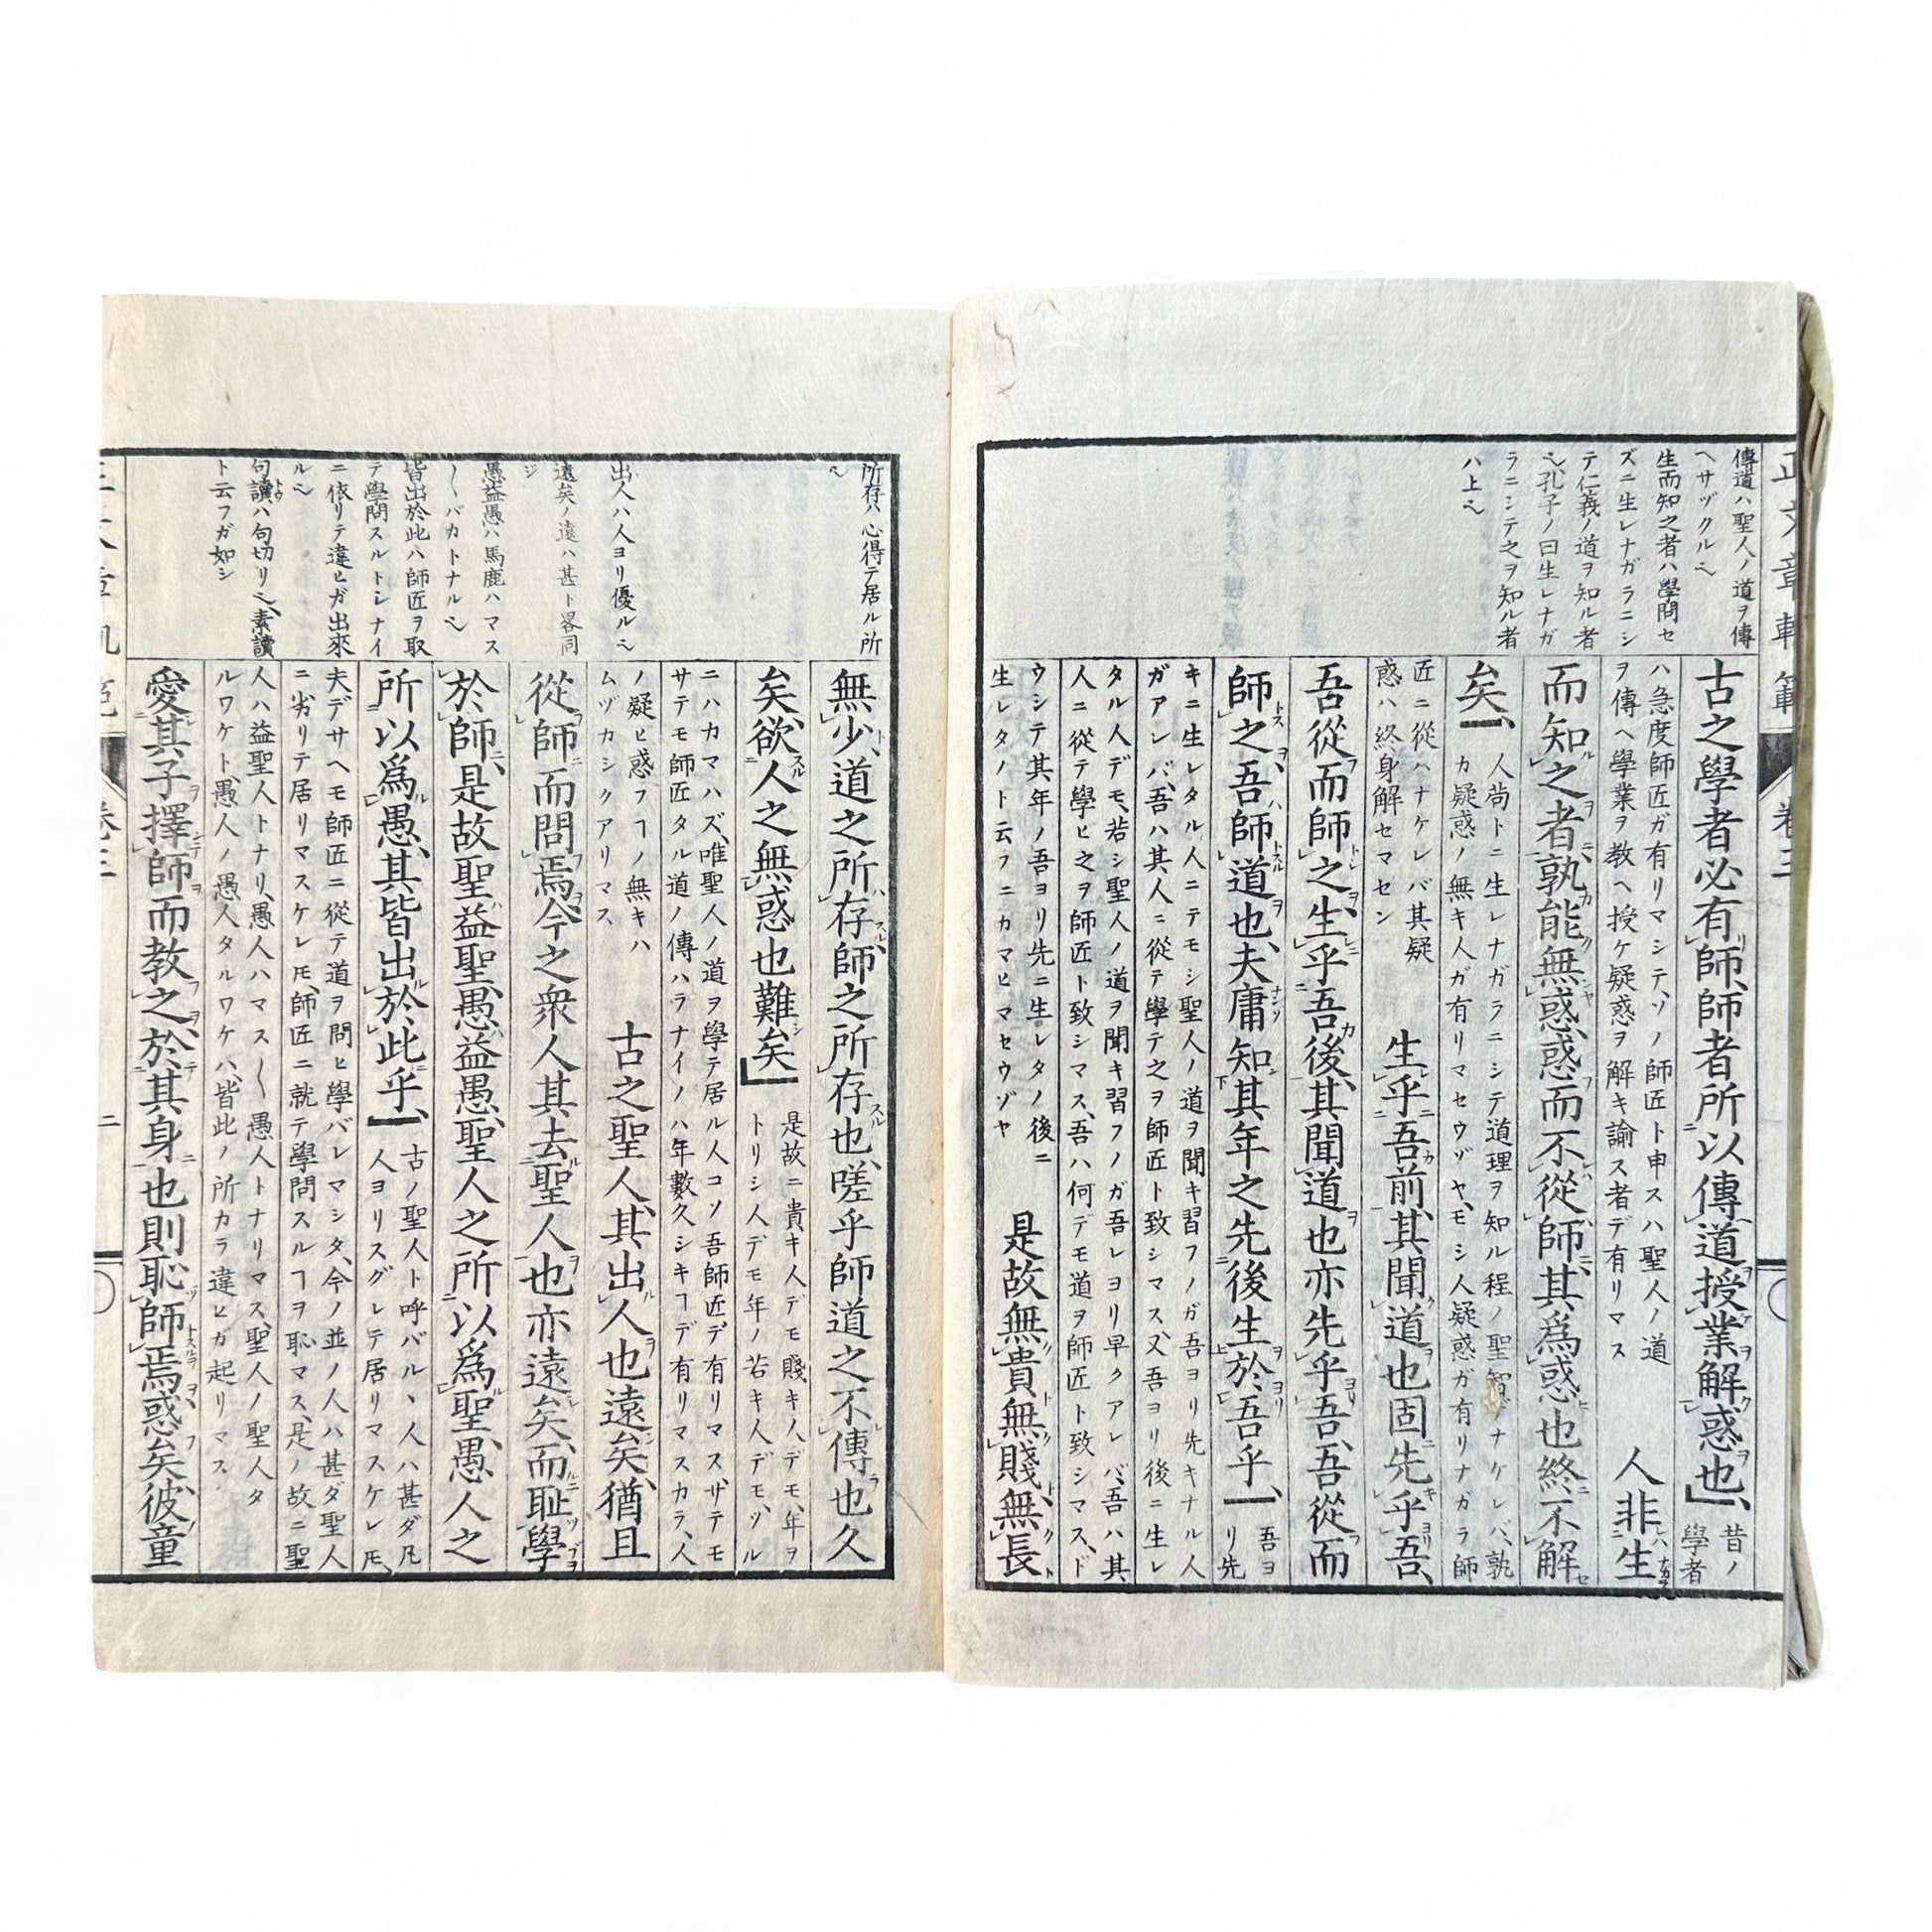 正文章軌範 卷三
傳道ハ聖人ノ道ヲ傳
ヘサヅクル也
生而知之者ハ學問セ
ズニ生レナガラニシ
テ仁義ノ道ヲ知ル者
也孔子ノ曰生レナガ
ラニシテ之ヲ知ル者
ハ上也
古之學者必有師、師者所以傳道授業解惑也」、昔ノ
學者
ハ急度師匠ガ有リマシテ、ソノ師匠ト申スハ聖人ノ道
ヲ傳ヘ學業ヲ教ヘ授ケ疑惑ヲ解キ諭ス者デ有リマス
人非生
而知之者孰能無惑、惑而不從師、其爲惑也終不解
矣」、人尚トニ生レナガラニシテ道理ヲ知ル程ノ聖智デナケレバ、孰
カ疑惑ノ無キ人ガ有リマセウゾヤ、モシ人疑惑ガ有リナガラ師
匠ニ從ハナケレバ其疑
惑ハ終身解セマセン
生乎吾前、其聞道也固先乎吾、
吾從而師之、生乎吾後、其聞道也亦先乎吾、吾從而
師之、吾師道也、夫庸知其年之先後生於吾乎」吾ヨ
リ先
キニ生レタル人ニテモシ聖人ノ道ヲ聞キ習フノガ吾ヨリ先キナル人
ガアレバ、吾ハ其人ニ從テ學テ之ヲ師匠ト致シマス又吾ヨリ後ニ生レ
タル人デモ、若シ聖人ノ道ヲ聞キ習フノガ吾レヨリ早クアレバ、吾ハ其
人ニ從テ學ヒ之ヲ師匠ト致シマス、吾ハ何デモ道ヲ師匠ト致シマス、ド
ウシテ其年ノ吾ヨリ先ニ生レタノ後ニ
生レタノト云フニカマヒマセウゾヤ
是故無貴無賤、無長
所存ハ心得テ居ル所
也
出人ハ人ヨリ優ル也
遠矣ノ遠ハ甚ト畧同
ジ
愚益愚ハ馬鹿ハマス
〱バカトナル也
皆出於此ハ師匠ヲ取
テ學問スルトシナイ
ニ依リテ違ヒガ出來
ル也
句讀ハ句切リ也、素讀
ト云フガ如シ
無少、道之所存師之所存也、嗟乎師道之不傳也久
矣、欲人之無惑也難矣」是故ニ貴キ人デモ賤キ人デモ、年ヲ
トリシ人デモ年ノ若キ人デモ、ツル
ニハカマハズ、唯聖人ノ道ヲ學テ居ル人コソ吾師匠デ有リマス、サテモ
サテモ師匠タル道ノ傳ハラナイノハ年數久シキヿデ有リマスカラ、人
ノ疑ヒ惑フヿノ無キハ
ムヅカシクアリマス
古之聖人、其出人也遠矣、猶且
從師而問焉、今之衆人其去聖人也亦遠矣、而耻學
於師、是故聖益聖、愚益愚、聖人之所以爲聖、愚人之
所以爲愚、其皆出於此乎」、古ノ聖人ト呼バルヽ人ハ甚ダ凡
人ヨリスグレテ居リマスケレ𪜈、
夫デサヘモ師匠ニ從テ道ヲ問ヒ學バレマシタ、今ノ並ノ人ハ甚ダ聖人
ニ劣リテ居リマスケレ𪜈、師匠ニ就テ學問スルヿヲ恥マス、是ノ故ニ聖
人ハ益聖人トナリ、愚人ハマス〱愚人トナリマス、聖人ノ聖人タ
ルワケト、愚人ノ愚人タルワケハ、皆此ノ所カラ違ヒガ起リマス
愛其子擇師而教之、於其身也則恥師焉、惑矣、彼童
卷三
二